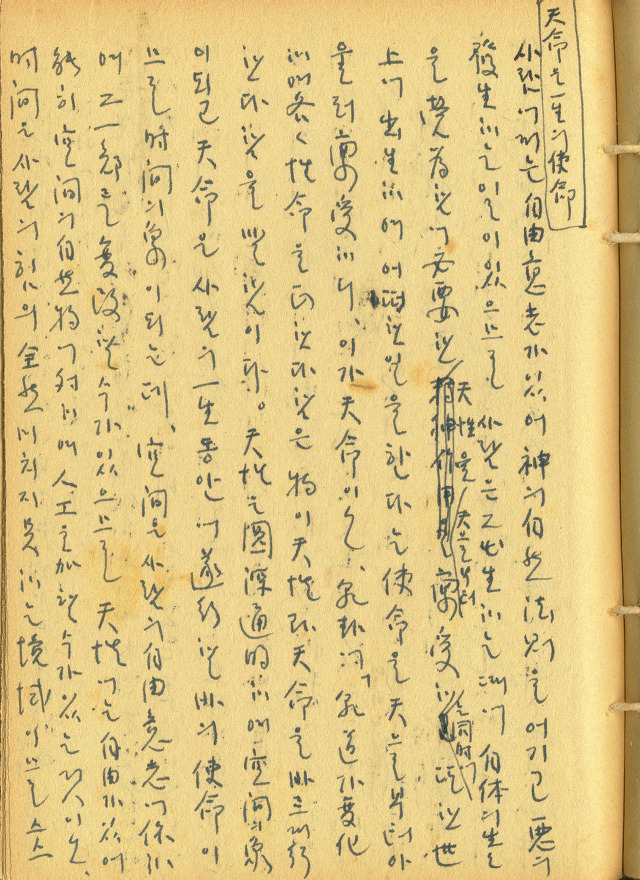 天命은 一生의 使命
사람에게는 自由意志가 있어 神의 自然法則을 어기고 惡의
發生하는 일이 있으므로 사람은 그 出生하는 때에 自体의 生
을 營為함에 必要한 天性을 天으로부터 稟受하는 同時에 또한 世
上에 出生하여 어떠한 일을 한다는 使命을 天으로부터 아
울러 稟受하니, 이가 天命이오, 乾卦에 乾道가 變化
하여 各各 性命을 正한다 함은 物이 天性과 天命을 바르게 行
한다 함을 말함이다。 天性은 圓深通的하여 空間의 象
이 되고 天命은 사람의 一生동안에 遂行할 바의 使命이
므로 时间의 象이 되는데, 空间은 사람의 自由意志에 依하
여 그 一部를 變改할 수가 있으므로 天性에는 自由가 있어
能히 空间의 自然物에 対하여 人工을 加할 수가 있는 것이오,
时间은 사람의 힘의 全然 미치지 못하는 境域이므로 스스